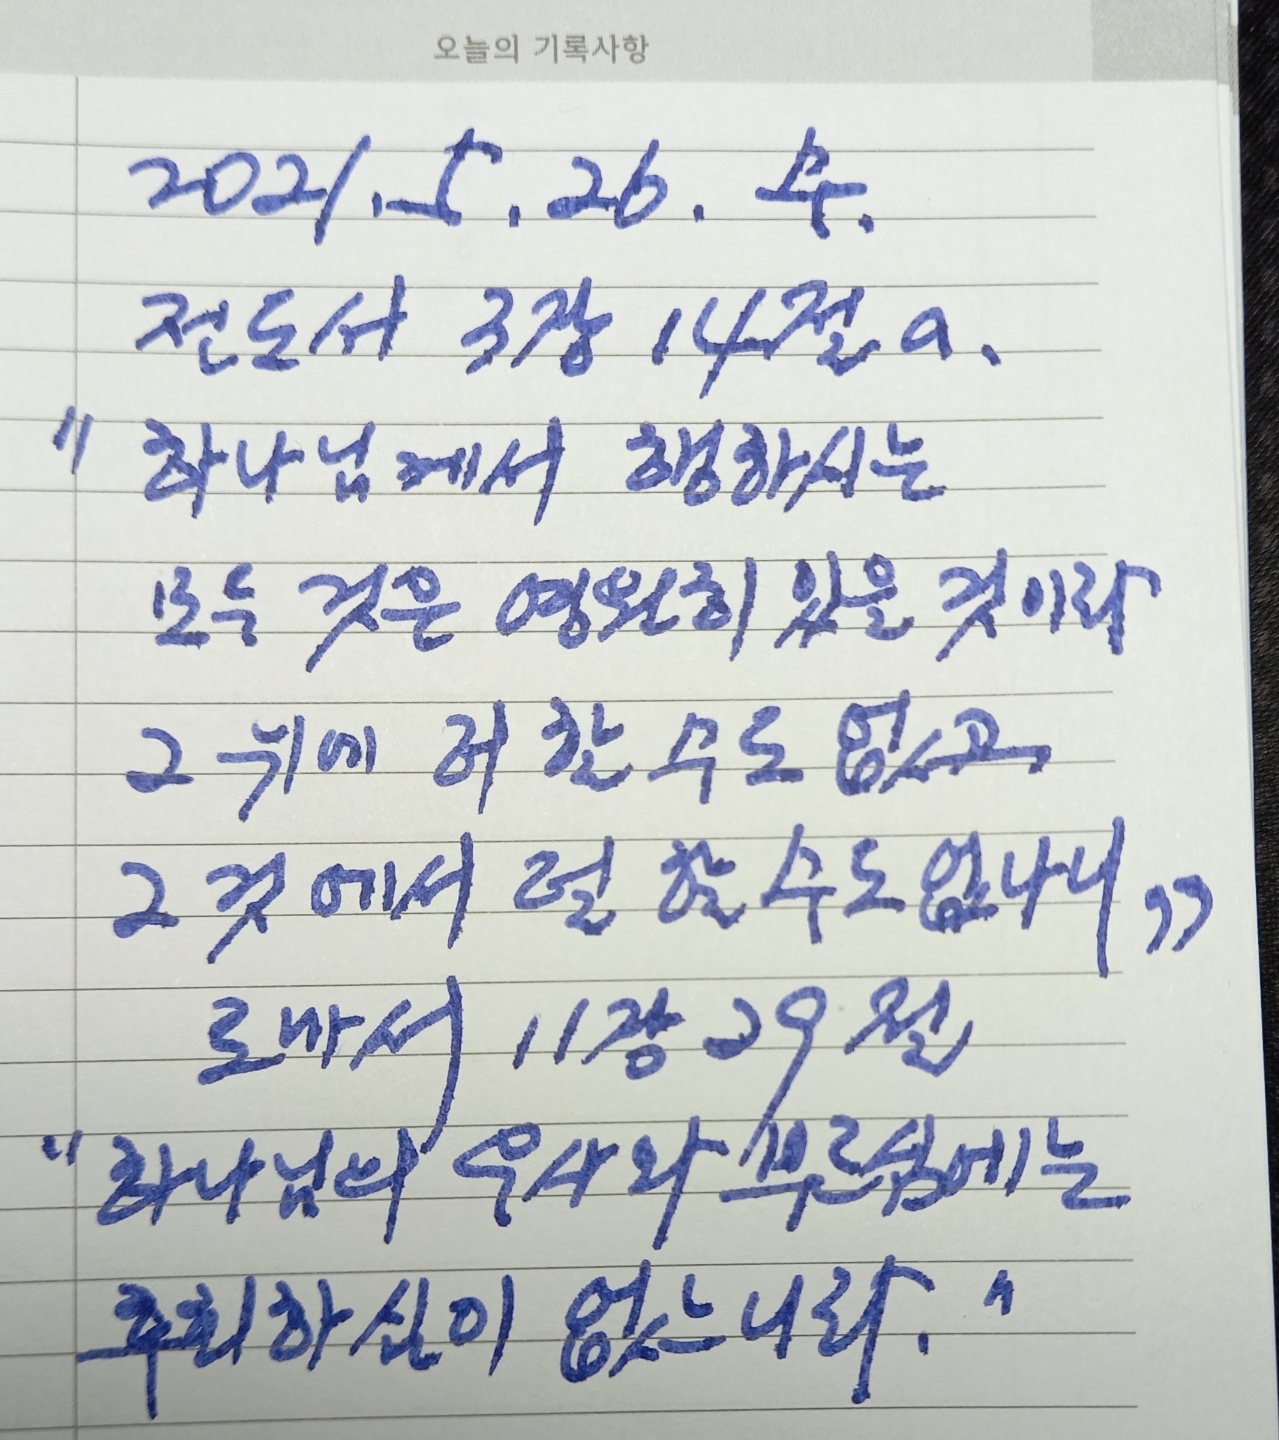 오늘의 기록사항
2021. 5. 26. 수.
전도서 3장 14절 a.
"하나님께서 행하시는
모두 것은 영원히 있을 것이라
그 위에 더 할 수도 없고
그 것에서 덜 할 수도 없나니"
로마서 11장 29절
"하나님의 은사와 부르심에는
후회하심이 없느니라."